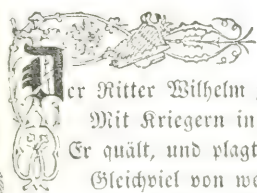 Der Ritter Wilhelm
Mit Kriegern in
Er quält, und plagt
Gleichviel von